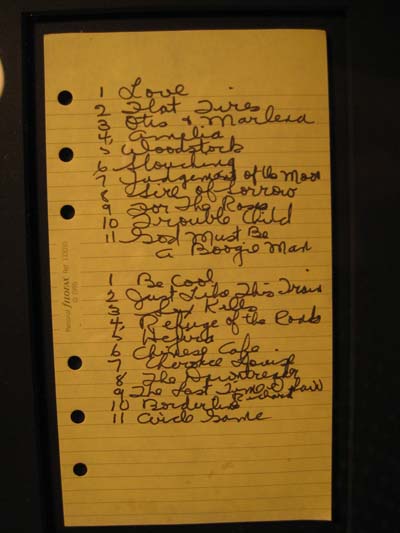 1 Love
2 Flat Tires
3 Otis + Marlena
4 Amelia
5 Woodstock
6 Slouching
7 Judgement of the Moon
8 Sire of Sorrow
9 For The Roses
10 Trouble Child
11 God Must Be
A Boogie Man
1 Be Cool
2 Just Like This Train
3 Sex Kills
4 Refuge of the Roads
5 Hejira
6 Chinese Cafe
7 Cherokee Louise
8 The Dawntreader
9 The Last Time I Saw
Richard
10 Borderline
11 Circle Game
Personal filofax Ref.